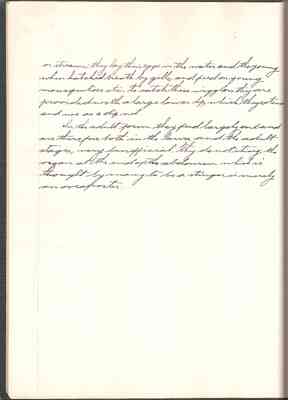 or stream they lay their eggs in the water and the young
when hatched breath by gills, and feed on young
mosquitoes etc. to catch these wigglers they are
provided with a large lower lip which they
and use as a dip net
In the adult form they feed largely on
are therefore both in the larva and the adult
stages, very beneficial. They do not sting the
organ at the end of the abdomen which is
thought by many to be a stinger is merely
an ovapositor.